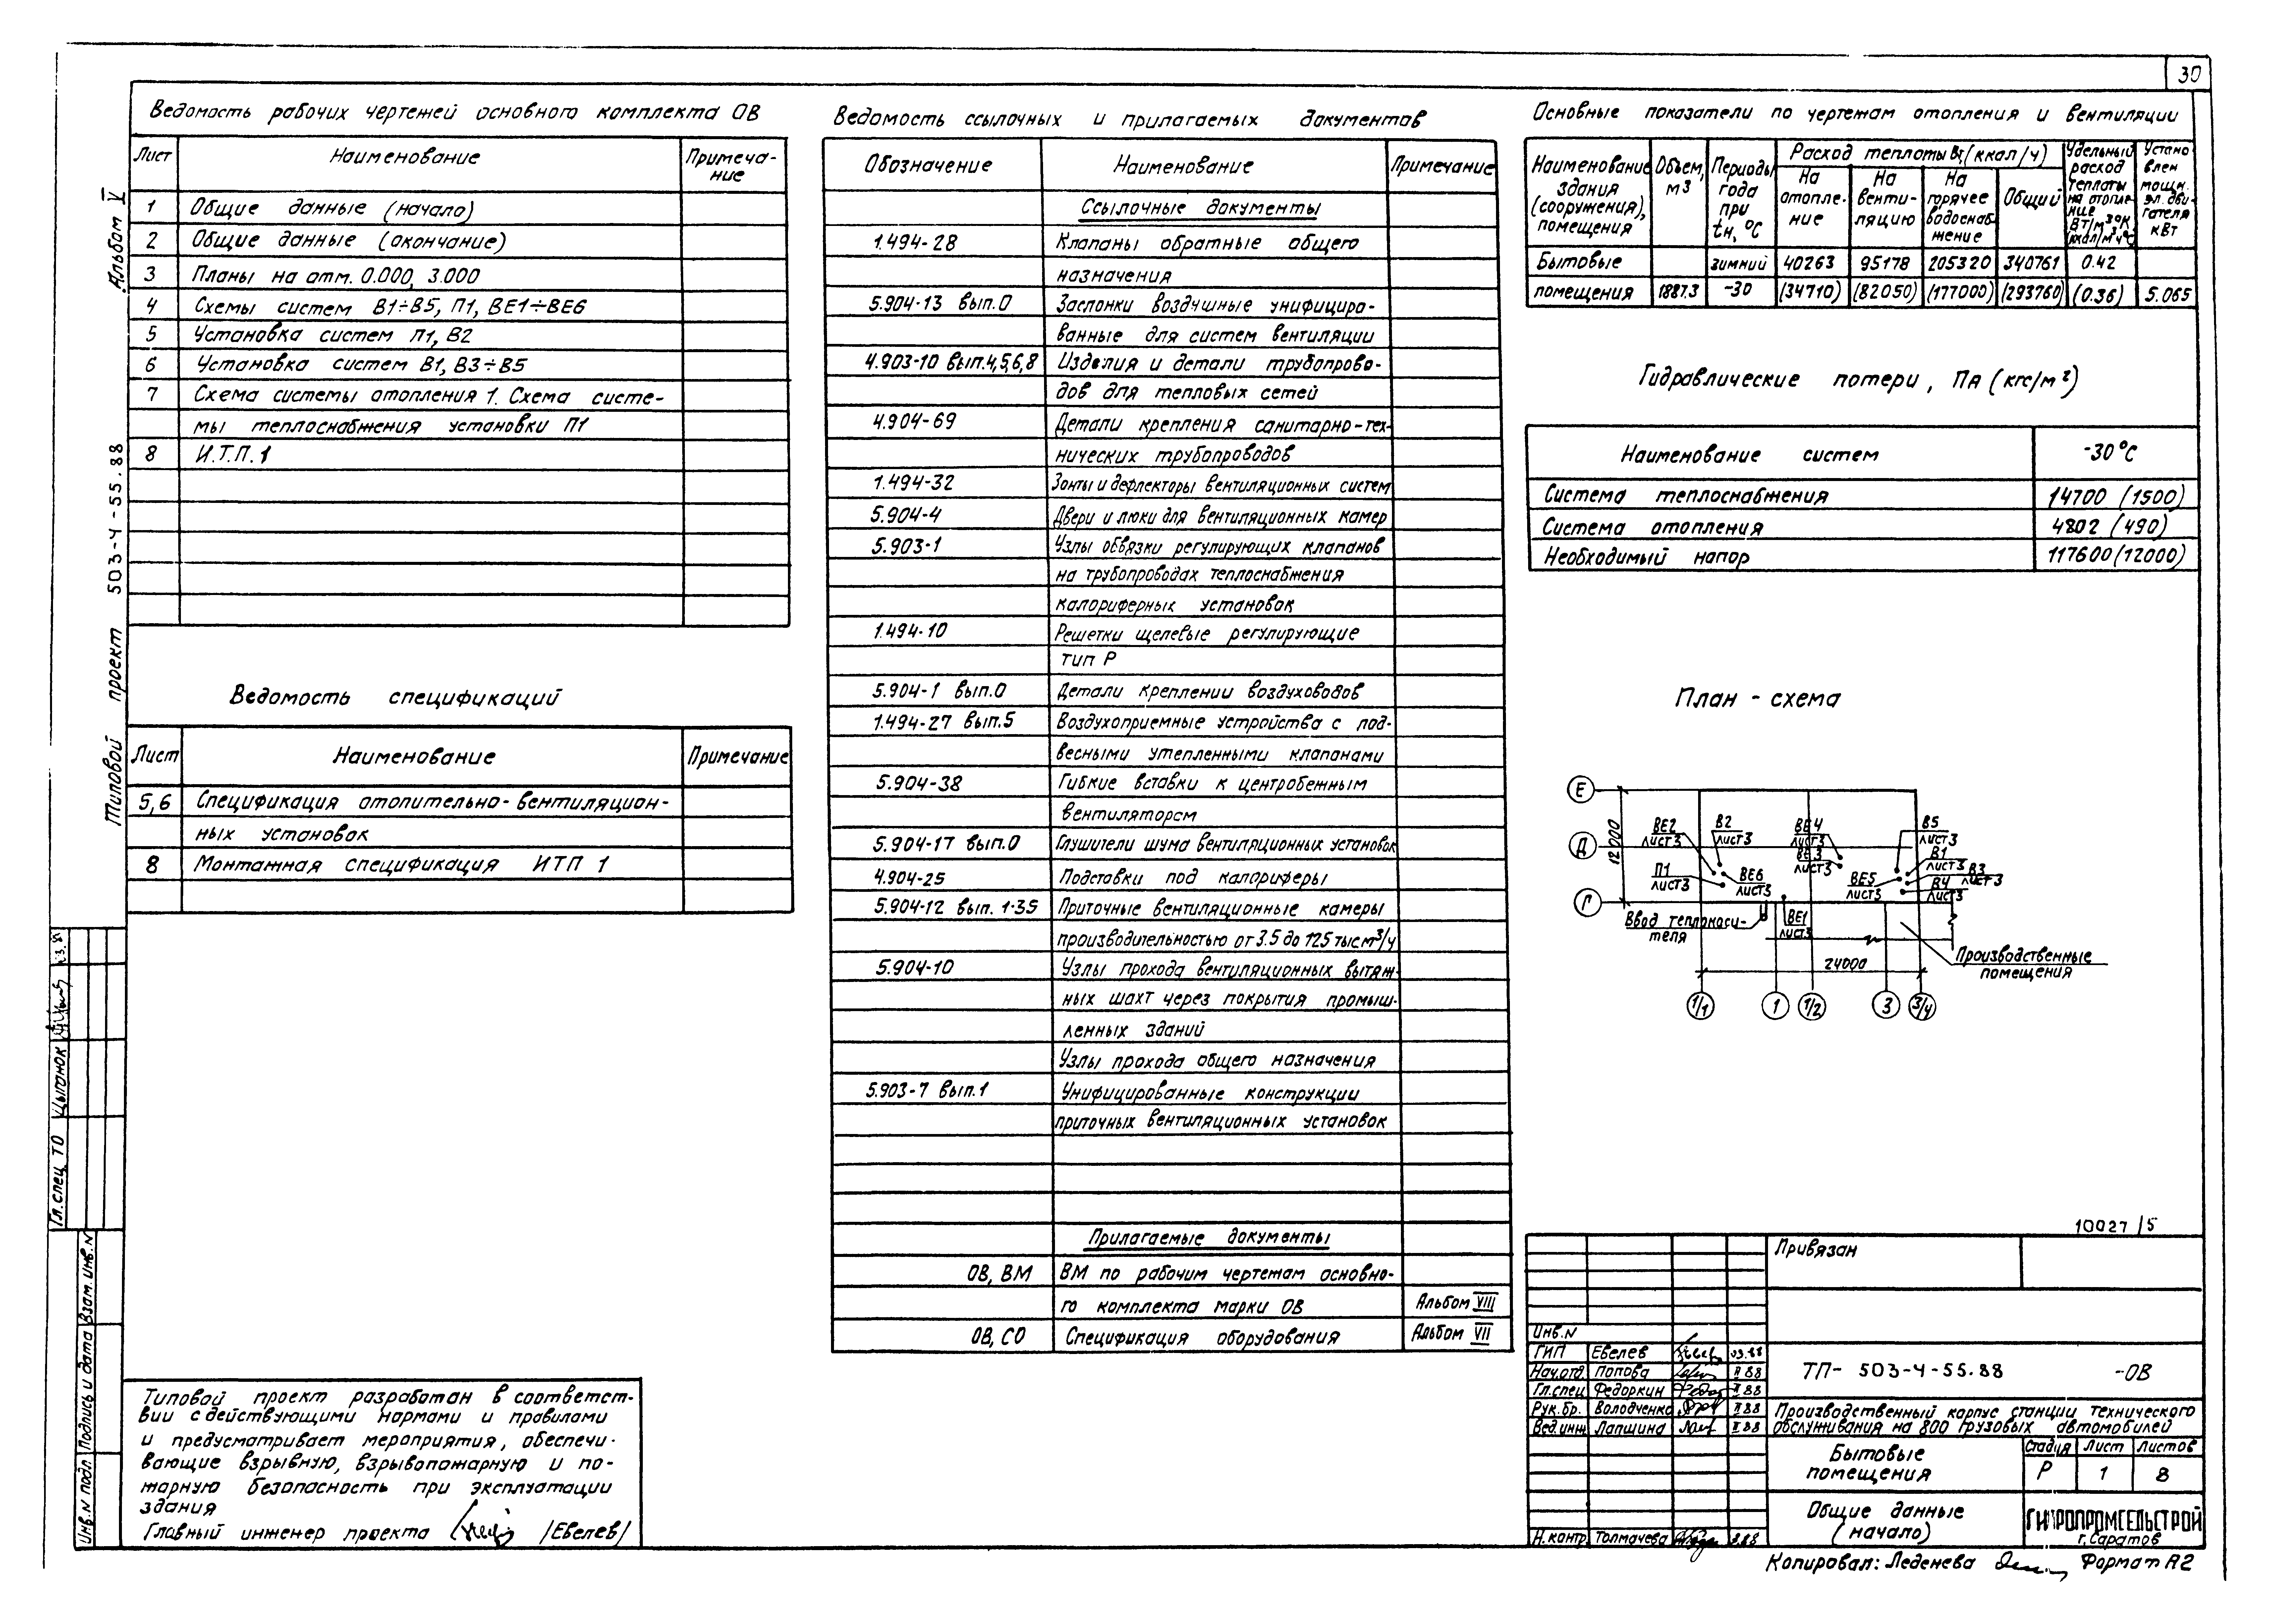 30
Ведомость рабочих чертежей основного комплекта ОВ
Лист Наименование Примеча-
ние
1 Общие данные (начало)
2 Общие данные (окончание)
3 Планы на отм. 0.000, 3.000
4 Схемы систем В1÷В5, П1, ВЕ1÷ВЕ6
5 Установка систем П1, В2
6 Установка систем В1, В3÷В5
7 Схема системы отопления 1. Схема систе-
мы теплоснабжения установки П1
8 И.Т.П.1
Ведомость спецификаций
Лист Наименование Примечание
5,6 Спецификация отопительно-вентиляцион-
ных установок
8 Монтажная спецификация ИТП 1
Типовой проект разработан в соответст-
вии с действующими нормами и правилами
и предусматривает мероприятия, обеспечи-
вающие взрывную, взрывопожарную и по-
жарную безопасность при эксплуатации
здания
Главный инженер проекта /Евелев/
Ведомость ссылочных и прилагаемых документов
Обозначение Наименование Примечание
Ссылочные документы
1.494-28 Клапаны обратные общего
назначения
5.904-13 вып.0 Заслонки воздушные унифициро-
ванные для систем вентиляции
4.903-10 вып.4,5,6,8 Изделия и детали трубопрово-
дов для тепловых сетей
4.904-69 Детали крепления санитарно-тех-
нических трубопроводов
1.494-32 Зонты и дефлекторы вентиляционных систем
5.904-4 Двери и люки для вентиляционных камер
5.903-1 Узлы обвязки регулирующих клапанов
на трубопроводах теплоснабжения
калориферных установок
1.494-10 Решетки щелевые регулирующие
тип Р
5.904-1 вып.0 Детали креплении воздуховодов
1.494-27 вып.5 Воздухоприемные устройства с под-
весными утепленными клапанами
5.904-38 Гибкие вставки к центробежным
вентиляторсм
5.904-17 вып.0 Глушители шума вентиляционных установок
4.904-25 Подставки под калориферы
5.904-12 вып. 1-35 Приточные вентиляционные камеры
производительностью от 3.5 до 125 тыс м³/ч
5.904-10 Узлы прохода вентиляционных вытяж-
ных шахт через покрытия промыш-
ленных зданий
Узлы прохода общего назначения
5.903-7 вып.1 Унифицированные конструкции
приточных вентиляционных установок
Прилагаемые документы
ОВ, ВМ ВМ по рабочим чертежам основно-
го комплекта марки ОВ Альбом VIII
ОВ, СО Спецификация оборудования Альбом VII
Основные показатели по чертежам отопления и вентиляции
Наименование здания (сооружения), помещения
Объем, м3
Периоды года при tн, °С
Расход теплоты Вт (ккал/ч)
На отопле-ние
На венти-ляцию
На горячее водоснаб-жение
Общий
Удельный расход теплоты на отопле-ние Вт/м³°К ккал/м³ч°С
Устано влен мощн. эл. дви-гателя кВт
Бытовые зимний 40263 95178 205320 340761 0.42
помещения 1887.3 -30 (34710) (82050) (177000) (293760) (0.36) 5.065
Гидравлические потери, Па (кгс/м²)
Наименование систем -30°С
Система теплоснабжения 14700 (1500)
Система отопления 4802 (490)
Необходимый напор 117600 (12000)
План - схема
Е
Д
Г
12000
ВЕ2
лист3
В2
лист3
ВЕ4
лист3
ВЕ3
лист3
В5
лист3
В1
лист3
В3
лист3
В4
лист3
П1
лист3
ВЕ6
лист3
ВЕ5
лист3
ВЕ1
лист3
Ввод теплоноси-
теля
24000
Производственные
помещения
1/1 1 1/2 3 3/4
10027/5
Привязан
Инв.N
ГИП Евелев 03.88
Нач.отд. Попова II 88
Гл.спец Федоркин II 88
Рук.бр. Володченко II 88
Вед.инж Лапшина II 88
Н.контр. Толмачева
ТП- 503-4-55.88 -ОВ
Производственный корпус станции технического
обслуживания на 800 грузовых автомобилей
Бытовые
помещения
Стадия Лист Листов
Р 1 8
Общие данные
(начало)
ГИПРОПРОМСЕЛЬСТРОЙ
г. Саратов
Копировал: Леденева Формат А2
Альбом V
Типовой проект 503-4-55.88
Гл.спец ТО Цыганок
Инв.N подл Подпись и дата Взам.инв.N